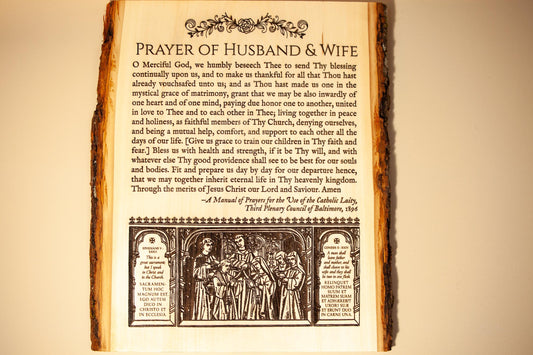 PRAYER OF HUSBAND & WIFE
O Merciful God, we humbly beseech Thee to send Thy blessing
continually upon us, and to make us thankful for all that Thou hast
already vouchsafed unto us; and as Thou hast made us one in the
mystical grace of matrimony, grant that we may be also inwardly of
one heart and of one mind, paying due honor one to another, united
in love to Thee and to each other in Thee; living together in peace
and holiness, as faithful members of Thy Church, denying ourselves,
and being a mutual help, comfort, and support to each other all the
days of our life. [Give us grace to train our children in Thy faith and
fear.] Bless us with health and strength, if it be Thy will, and with
whatever else Thy good providence shall see to be best for our souls
and bodies. Fit and prepare us day by day for our departure hence,
that we may together inherit eternal life in Thy heavenly kingdom.
Through the merits of Jesus Christ our Lord and Saviour. Amen
–A Manual of Prayers for the Use of the Catholic Laity,
Third Plenary Council of Baltimore, 1896
EPHESIANS V
This is a
great sacrament;
but I speak
in Christ and
in the Church.
SACRAMEN-
TUM HOC
MAGNUM EST,
EGO AUTEM
DICO IN
CHRISTO ET
IN ECCLESIA
GENESIS II
A man shall
leave father
and mother, and
shall cleave to his
wife: and they shall
be two in one flesh.
RELINQUET
HOMO PATREM
SUUM ET
MATREM SUAM
ET ADHÆREBIT
UXORI SUÆ
ET ERUNT DUO
IN CARNE UNA.